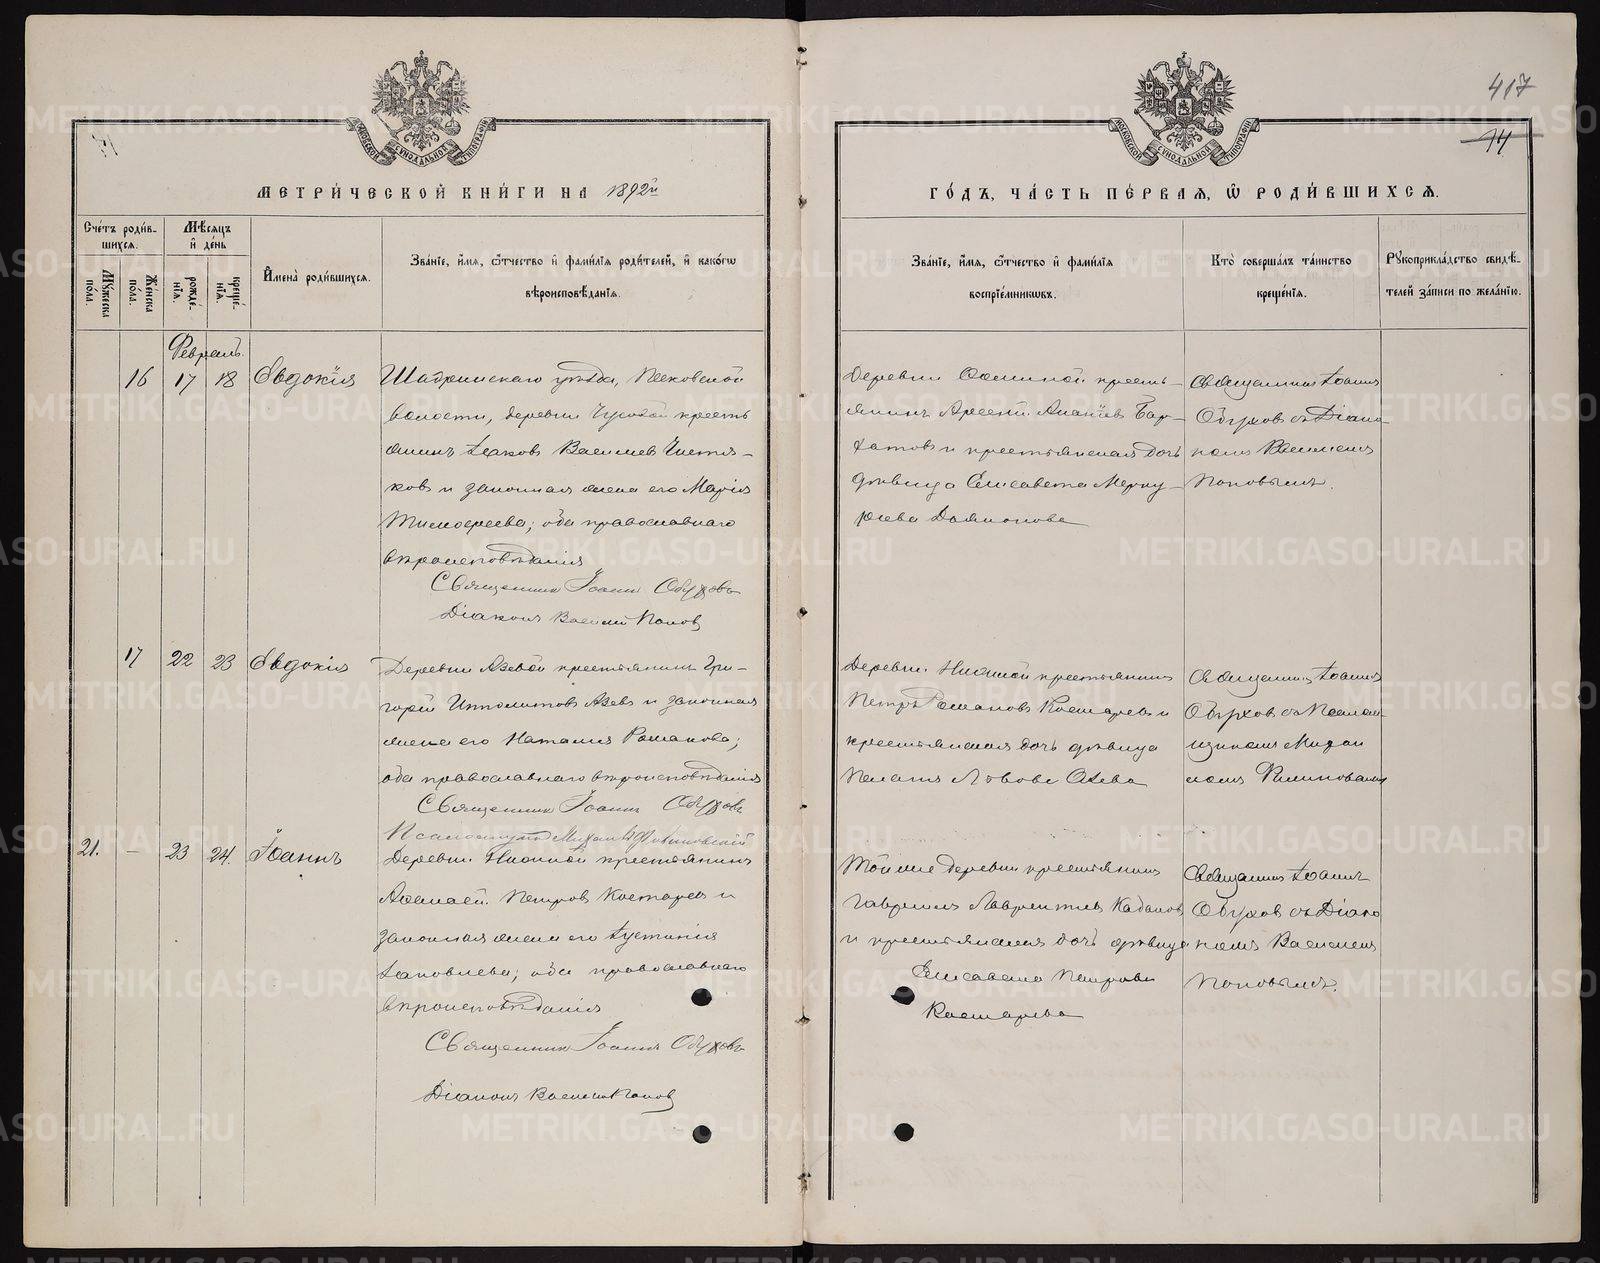 417
14
МЕТРИ́ЧЕСКОЙ КНИ́ГИ НА 1892й
ГО́ДЪ, ЧА́СТЬ ПЕ́РВАѦ, Ѡ РОДИ́ВШИХСѦ.
Сче́тъ роди́в-
шихсѧ.
Мꙋжеска по́ла.
Же́нска по́ла.
Мѣ́сѧцъ и де́нь
рожде́-нїѧ.
креще́-нїѧ.
И҆мена̀ роди́вшихсѧ.
Зва́нїе, и҆́мѧ, ѻ҆́тчество и҆ фами́лїѧ роди́телей, и҆ како́гѡ
вѣроисповѣ́данїѧ.
Зва́нїе, и҆́мѧ, ѻ҆́тчество и҆ фами́лїѧ
воспрїе́мникѡвъ.
Кто̀ соверша́лъ та́инство
креще́нїѧ.
Рꙋкоприкла́дство свидѣ́-
телей за́писи по жела́нїю.
Февраль.
16 17 18 Евдокія
Шадринскаго уѣзда, Песковской
волости, деревни Чусовой кресть
янинъ Іаковъ Васильевъ Чистя-
ковъ и законная жена его Марія
Тимофеева; оба православнаго
вѣроисповѣданія
Священникъ Іоаннъ Обуховъ
Діаконъ Василій Поповъ
крестья-
янинъ Арсеній Ананіевъ Бар-
хатовъ и крестьянская дочь
дѣвица Елисавета Мерку-
рьева
Священникъ Іоаннъ
Обуховъ съ Діако-
номъ Василіемъ
Поповымъ.
17 22 23 Евдокія
Деревни Язевой крестьянинъ Гри-
горій Ипполитовъ Язевъ и законная
жена его Наталія Романова;
оба православнаго вѣроисповѣданія
Священникъ Іоаннъ Обуховъ
Псаломщикъ Михаилъ
Деревни крестьянинъ
Петръ Романовъ Костаревъ и
крестьянская дочь дѣвица
Пелагія Львова Язева
Священникъ Іоаннъ
Обуховъ съ Псалом-
щикомъ Михаи
ломъ
21. — 23 24. Іоаннъ
Деревни крестьянинъ
Петровъ Костаревъ и
законная жена его Іустинія
Іаковлева; оба православнаго
вѣроисповѣданія
Священникъ Іоаннъ Обуховъ
Діаконъ Василій Поповъ
Той же деревни крестьянинъ
Гавріилъ Лаврентіевъ
и крестьянская дочь дѣвица
Елисавета Петрова
Костарева
Священникъ Іоаннъ
Обуховъ съ Діако
номъ Василіемъ
Поповымъ.
METRIKI.GASO-URAL.RU